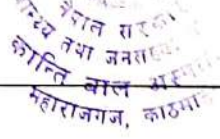 नेपाल सरका
न्थ्य तथा जनसंख्य
कान्ति बाल अस्प
महाराजगंज, काठमा